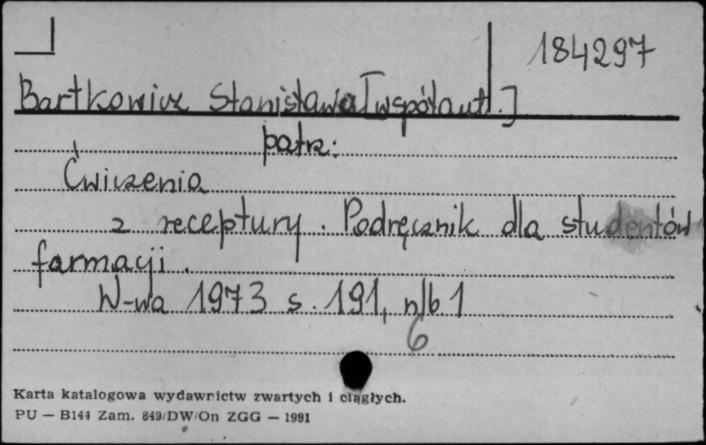 184297
Bartkowicz Stanisława [współaut.]
patrz:
Ćwiczenia
z receptury. Podręcznik dla studentów
farmacji.
W-wa 1973 s. 191, nlb 1
6
Karta katalogowa wydawnictw zwartych i ciągłych.
PU — B144 Zam. 849/DW/On ZGG — 1991